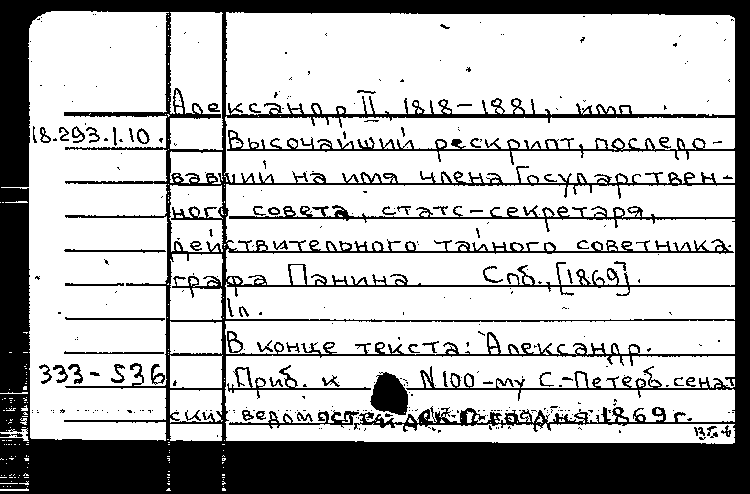 Александр II, 1818-1881, имп.
18.293.1.10. Высочайший рескрипт, последо-
вавший на имя члена Государствен-
ного совета, статс-секретаря,
действительного тайного советника
графа Панина. Спб., [1869].
1л.
В конце текста: Александр.
333-536. "Приб. к N100-му С.-Петерб. сенат
ских ведомостей 1869 г.